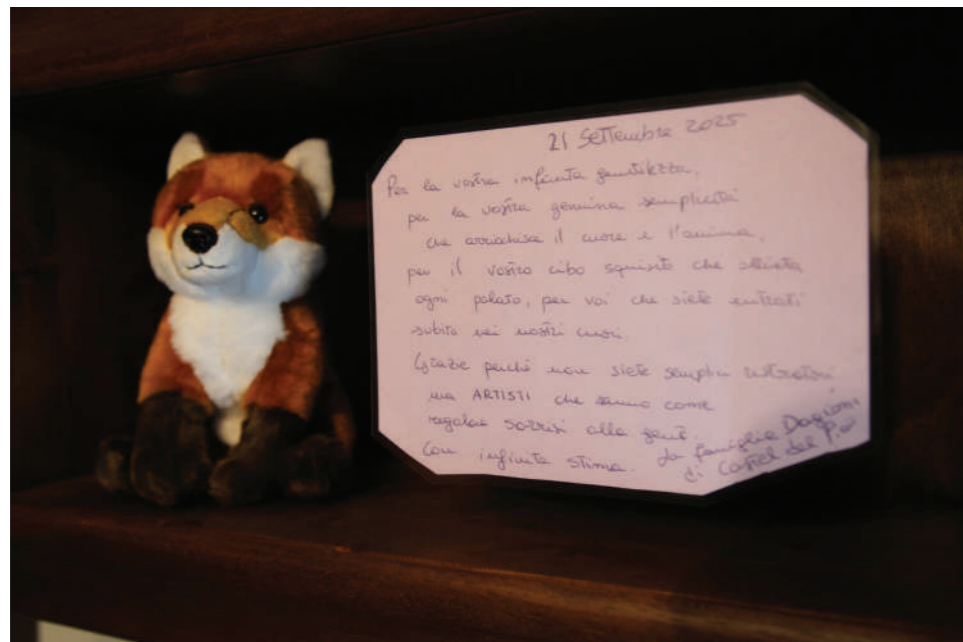 21 Settembre 2025
Per la vostra infinita gentilezza,
per la vostra genuina semplicità
che arricchisce il cuore e l'anima,
per il vostro cibo squisito che allieta
ogni palato, per voi che siete entrati
subito nei nostri cuori.
Grazie perché non siete semplici ristoratori
ma ARTISTI che sanno come
regalare sorrisi alla gente.
Con infinita stima. La famiglia
di Castel del Piano